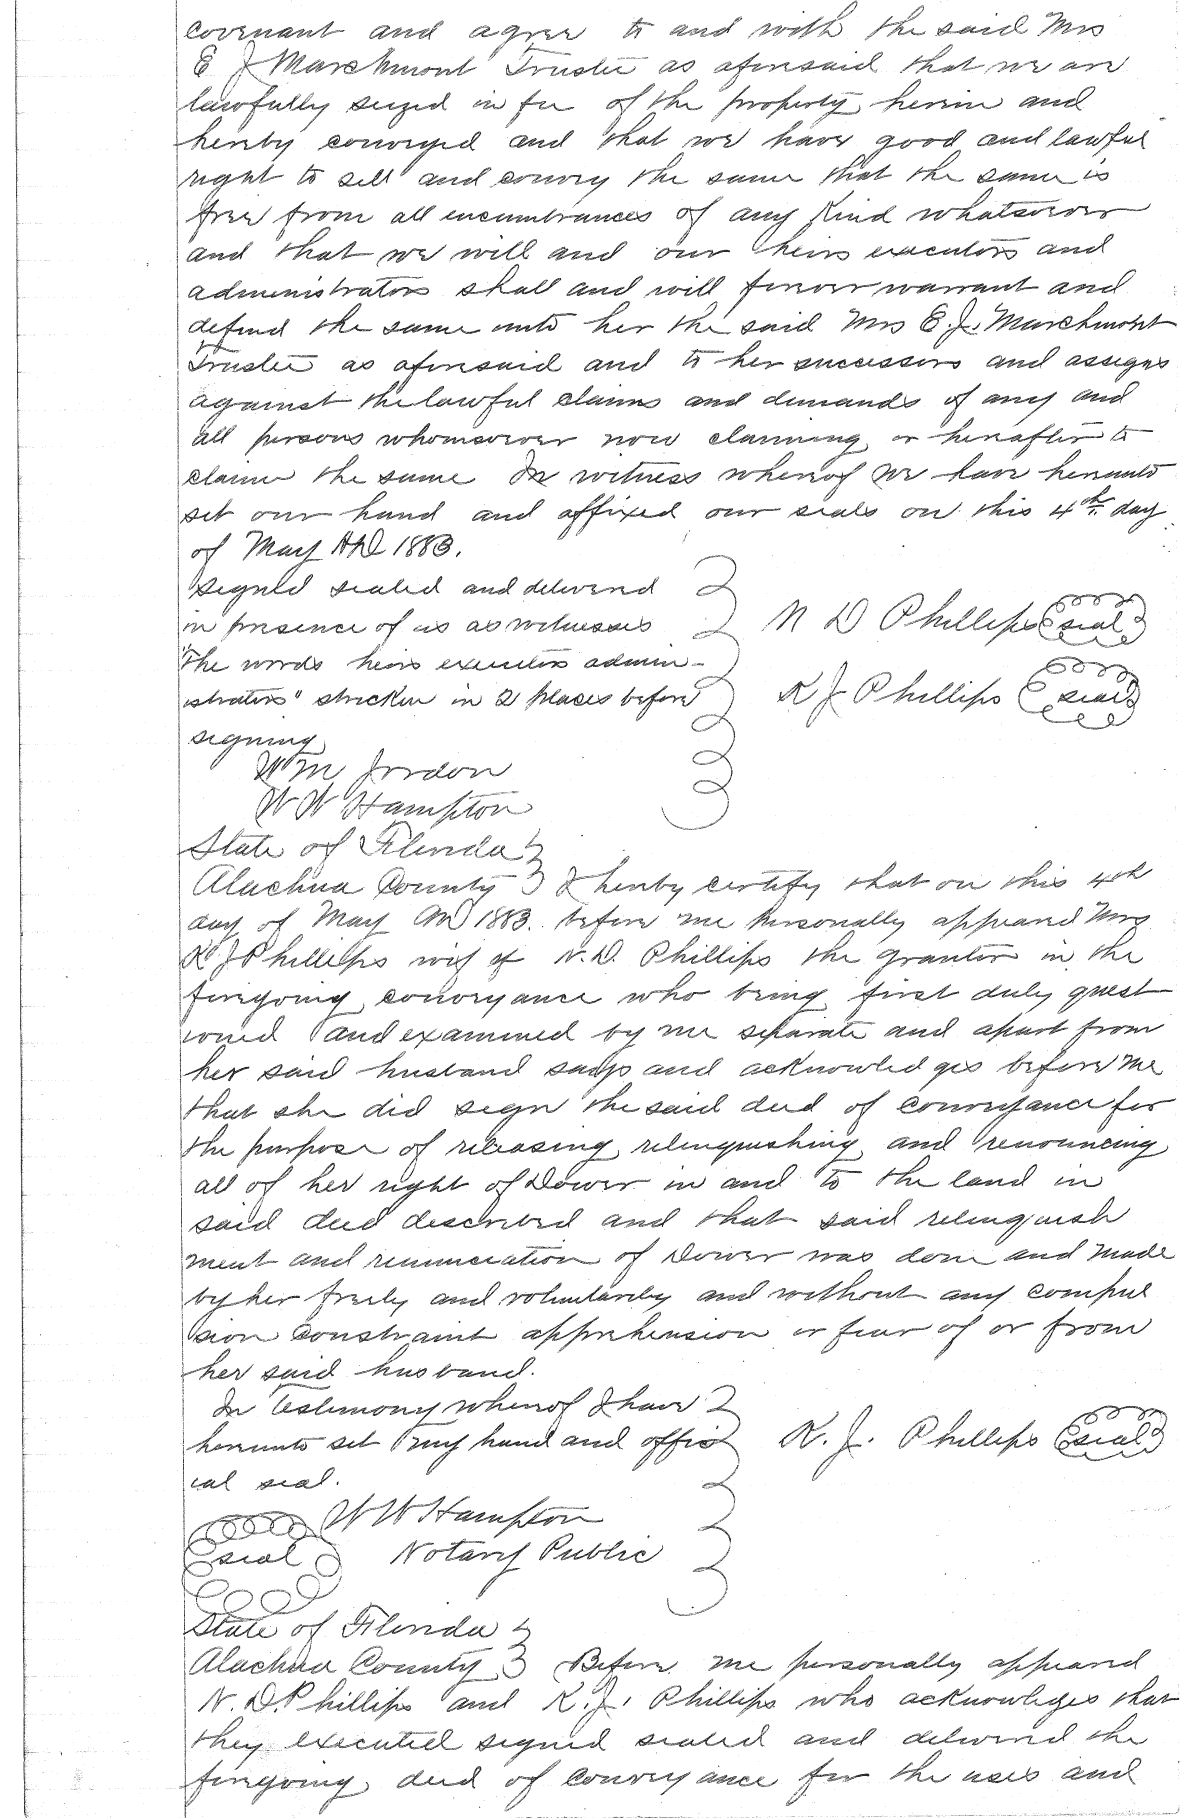 covenant and agree to and with the said Mrs
E J Marchmont Trustee as aforesaid that we are
lawfully seized in fee of the property herein and
hereby conveyed and that we have good and lawful
right to sell and convey the same that the same is
free from all encumbrances of any kind whatsoever
and that we will and our heirs executors and
administrators shall and will forever warrant and
defend the same unto her the said Mrs E. J. Marchmont
Trustee as aforesaid and to her successors and assigns
against the lawful claims and demands of any and
all persons whomsoever now claiming or hereafter to
claim the same In witness whereof we have hereunto
set our hand and affixed our seals on this 4th day
of May AD 1883.
Signed sealed and delivered
in presence of us as witnesses
N D Phillips seal
"The words heirs executors admin-
istrators" stricken in 2 places before
K J Phillips seal
signing
Wm Jordon
W W Hampton
State of Florida
Alachua County I hereby certify that on this 4th
day of May AD 1883. before me personally appeared Mrs
K J Phillips wife of N. D. Phillips the grantor in the
foregoing conveyance who being first duly quest
ioned and examined by me separate and apart from
her said husband says and acknowledges before me
that she did sign the said deed of conveyance for
the purpose of releasing relinquishing and renouncing
all of her right of Dower in and to the land in
said deed described and that said relinquish
ment and renunciation of Dower was done and made
by her freely and voluntarily and without any compul
sion constraint apprehension or fear of or from
her said husband.
In Testimony whereof I have
hereunto set my hand and offic
K. J. Phillips seal
ial seal.
W W Hampton
seal Notary Public
State of Florida
Alachua County Before me personally appeared
N. D. Phillips and K. J. Phillips who acknowleges that
they executed signed sealed and delivered the
foregoing deed of conveyance for the uses and